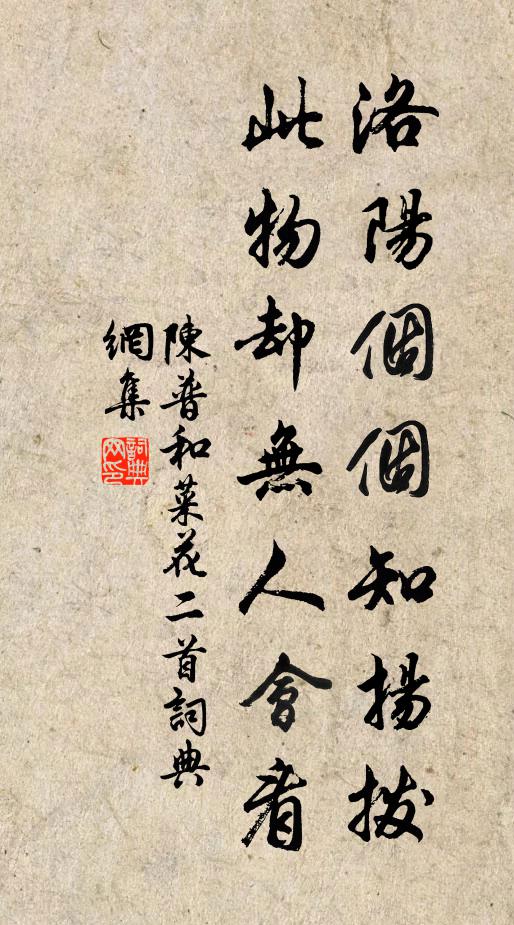 洛陽個個知揚拨
此物却無人會看
陳普和菜花二首詞典
網集
詞典网印